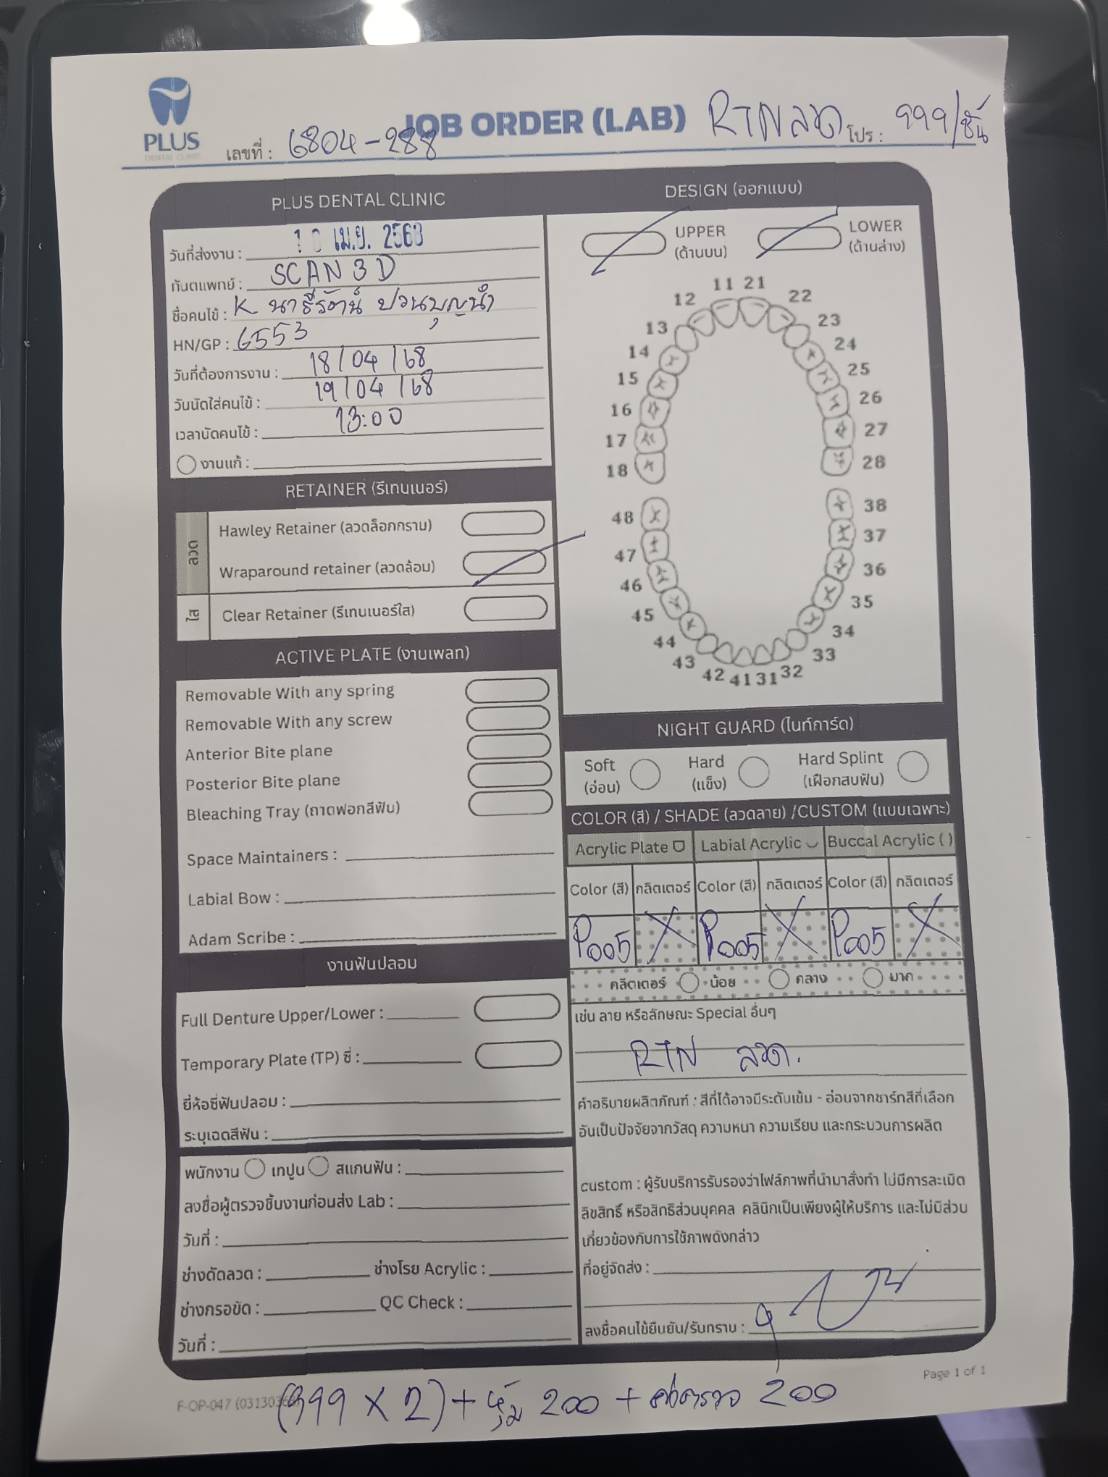 PLUS
DENTAL CLINIC
เลขที่ : 6804-288
JOB ORDER (LAB) RTN ลวด โปร : 999/ชิ้น
PLUS DENTAL CLINIC
วันที่ส่งงาน : 10 เม.ย. 2568
ทันตแพทย์ : SCAN 3D
ชื่อคนไข้ : K
HN/GP : 6553
วันที่ต้องการงาน : 18/04/68
วันนัดใส่คนไข้ : 19/04/68
เวลานัดคนไข้ : 13:00
งานแก้ :
RETAINER (รีเทนเนอร์)
ลวด
Hawley Retainer (ลวดล็อกกราม)
Wraparound retainer (ลวดล้อม)
ใส
Clear Retainer (รีเทนเนอร์ใส)
ACTIVE PLATE (งานเพลท)
Removable With any spring
Removable With any screw
Anterior Bite plane
Posterior Bite plane
Bleaching Tray (ถาดฟอกสีฟัน)
Space Maintainers :
Labial Bow :
Adam Scribe :
งานฟันปลอม
Full Denture Upper/Lower :
Temporary Plate (TP) ซี่ :
ยี่ห้อซี่ฟันปลอม :
ระบุเฉดสีฟัน :
พนักงาน เทปูน สแกนฟัน :
ลงชื่อผู้ตรวจชิ้นงานก่อนส่ง Lab :
วันที่ :
ช่างดัดลวด : ช่างโรย Acrylic :
ช่างกรอขัด : QC Check :
วันที่ :
DESIGN (ออกแบบ)
UPPER
(ด้านบน)
LOWER
(ด้านล่าง)
11 21
12 22
13 23
14 24
15 25
16 26
17 27
18 28
48 38
47 37
46 36
45 35
44 34
43 33
42 41 31 32
NIGHT GUARD (ไนท์การ์ด)
Soft
(อ่อน)
Hard
(แข็ง)
Hard Splint
(เฝือกสบฟัน)
COLOR (สี) / SHADE (ลวดลาย) /CUSTOM (แบบเฉพาะ)
Acrylic Plate Labial Acrylic Buccal Acrylic ( )
Color (สี) กลิตเตอร์ Color (สี) กลิตเตอร์ Color (สี) กลิตเตอร์
P005 X P005 X P005 X
กลิตเตอร์ น้อย กลาง มาก
เช่น ลาย หรือลักษณะ Special อื่นๆ
RTN ลวด.
คำอธิบายผลิตภัณฑ์ : สีที่ได้อาจมีระดับเข้ม - อ่อนจากชาร์ทสีที่เลือก
อันเป็นปัจจัยจากวัสดุ ความหนา ความเรียบ และกระบวนการผลิต
custom : ผู้รับบริการรับรองว่าไฟล์ภาพที่นำมาสั่งทำ ไม่มีการละเมิด
ลิขสิทธิ์ หรือสิทธิส่วนบุคคล คลินิกเป็นเพียงผู้ให้บริการ และไม่มีส่วน
เกี่ยวข้องกับการใช้ภาพดังกล่าว
ที่อยู่จัดส่ง :
ลงชื่อคนไข้ยืนยัน/รับทราบ :
Page 1 of 1
F-OP-047
(999 X 2) + หุ้ม 200 + ค่าตรวจ 200